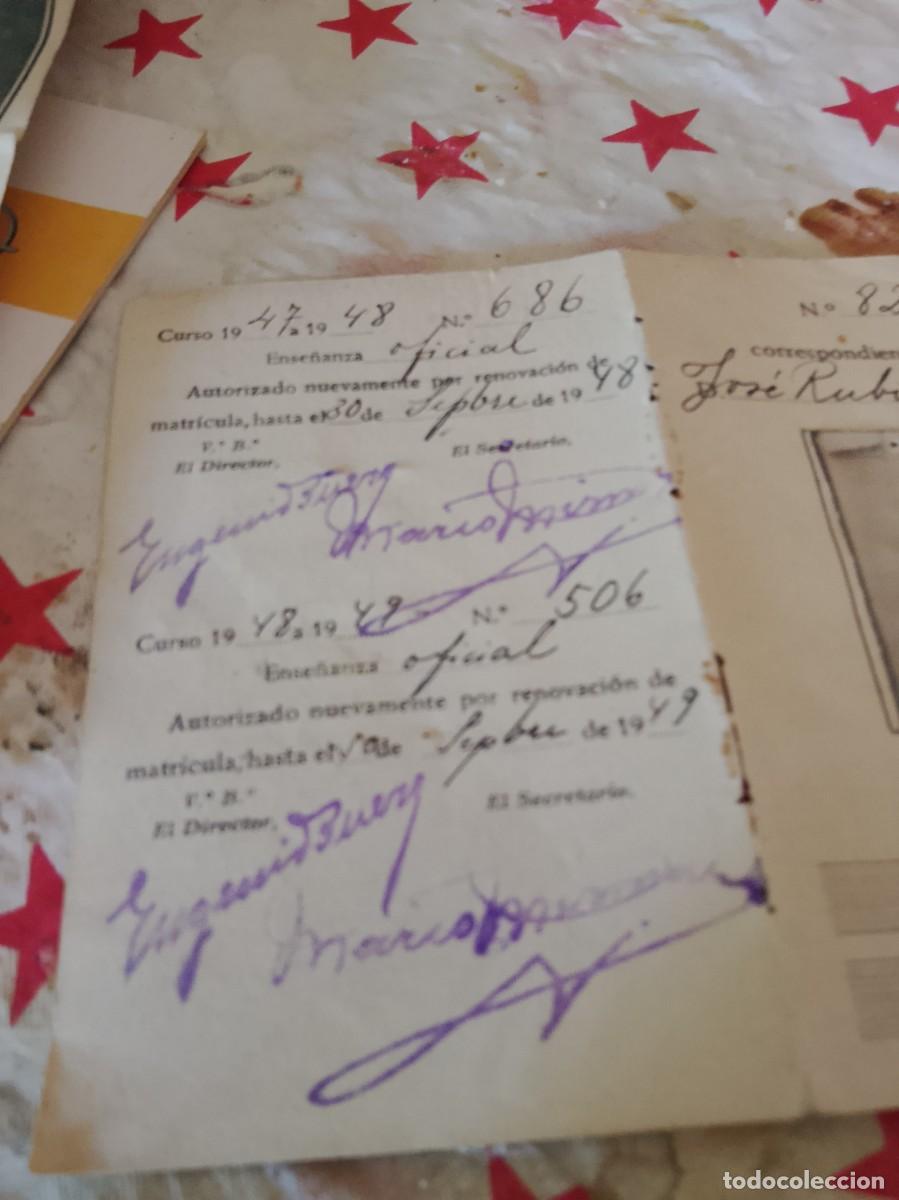 Curso 19 47 a 19 48 N.º 686
Enseñanza oficial
Autorizado nuevamente por renovación de
matrícula, hasta el 30 de Sepbre de 19 48
V.º B.º
El Director, El Secretario,
Mario
Curso 19 48 a 19 49 N.º 506
Enseñanza oficial
Autorizado nuevamente por renovación de
matrícula, hasta el de Sepbre de 19 49
V.º B.º
El Director, El Secretario,
Mario
Nº 82
correspondien
José Rub
todocoleccion